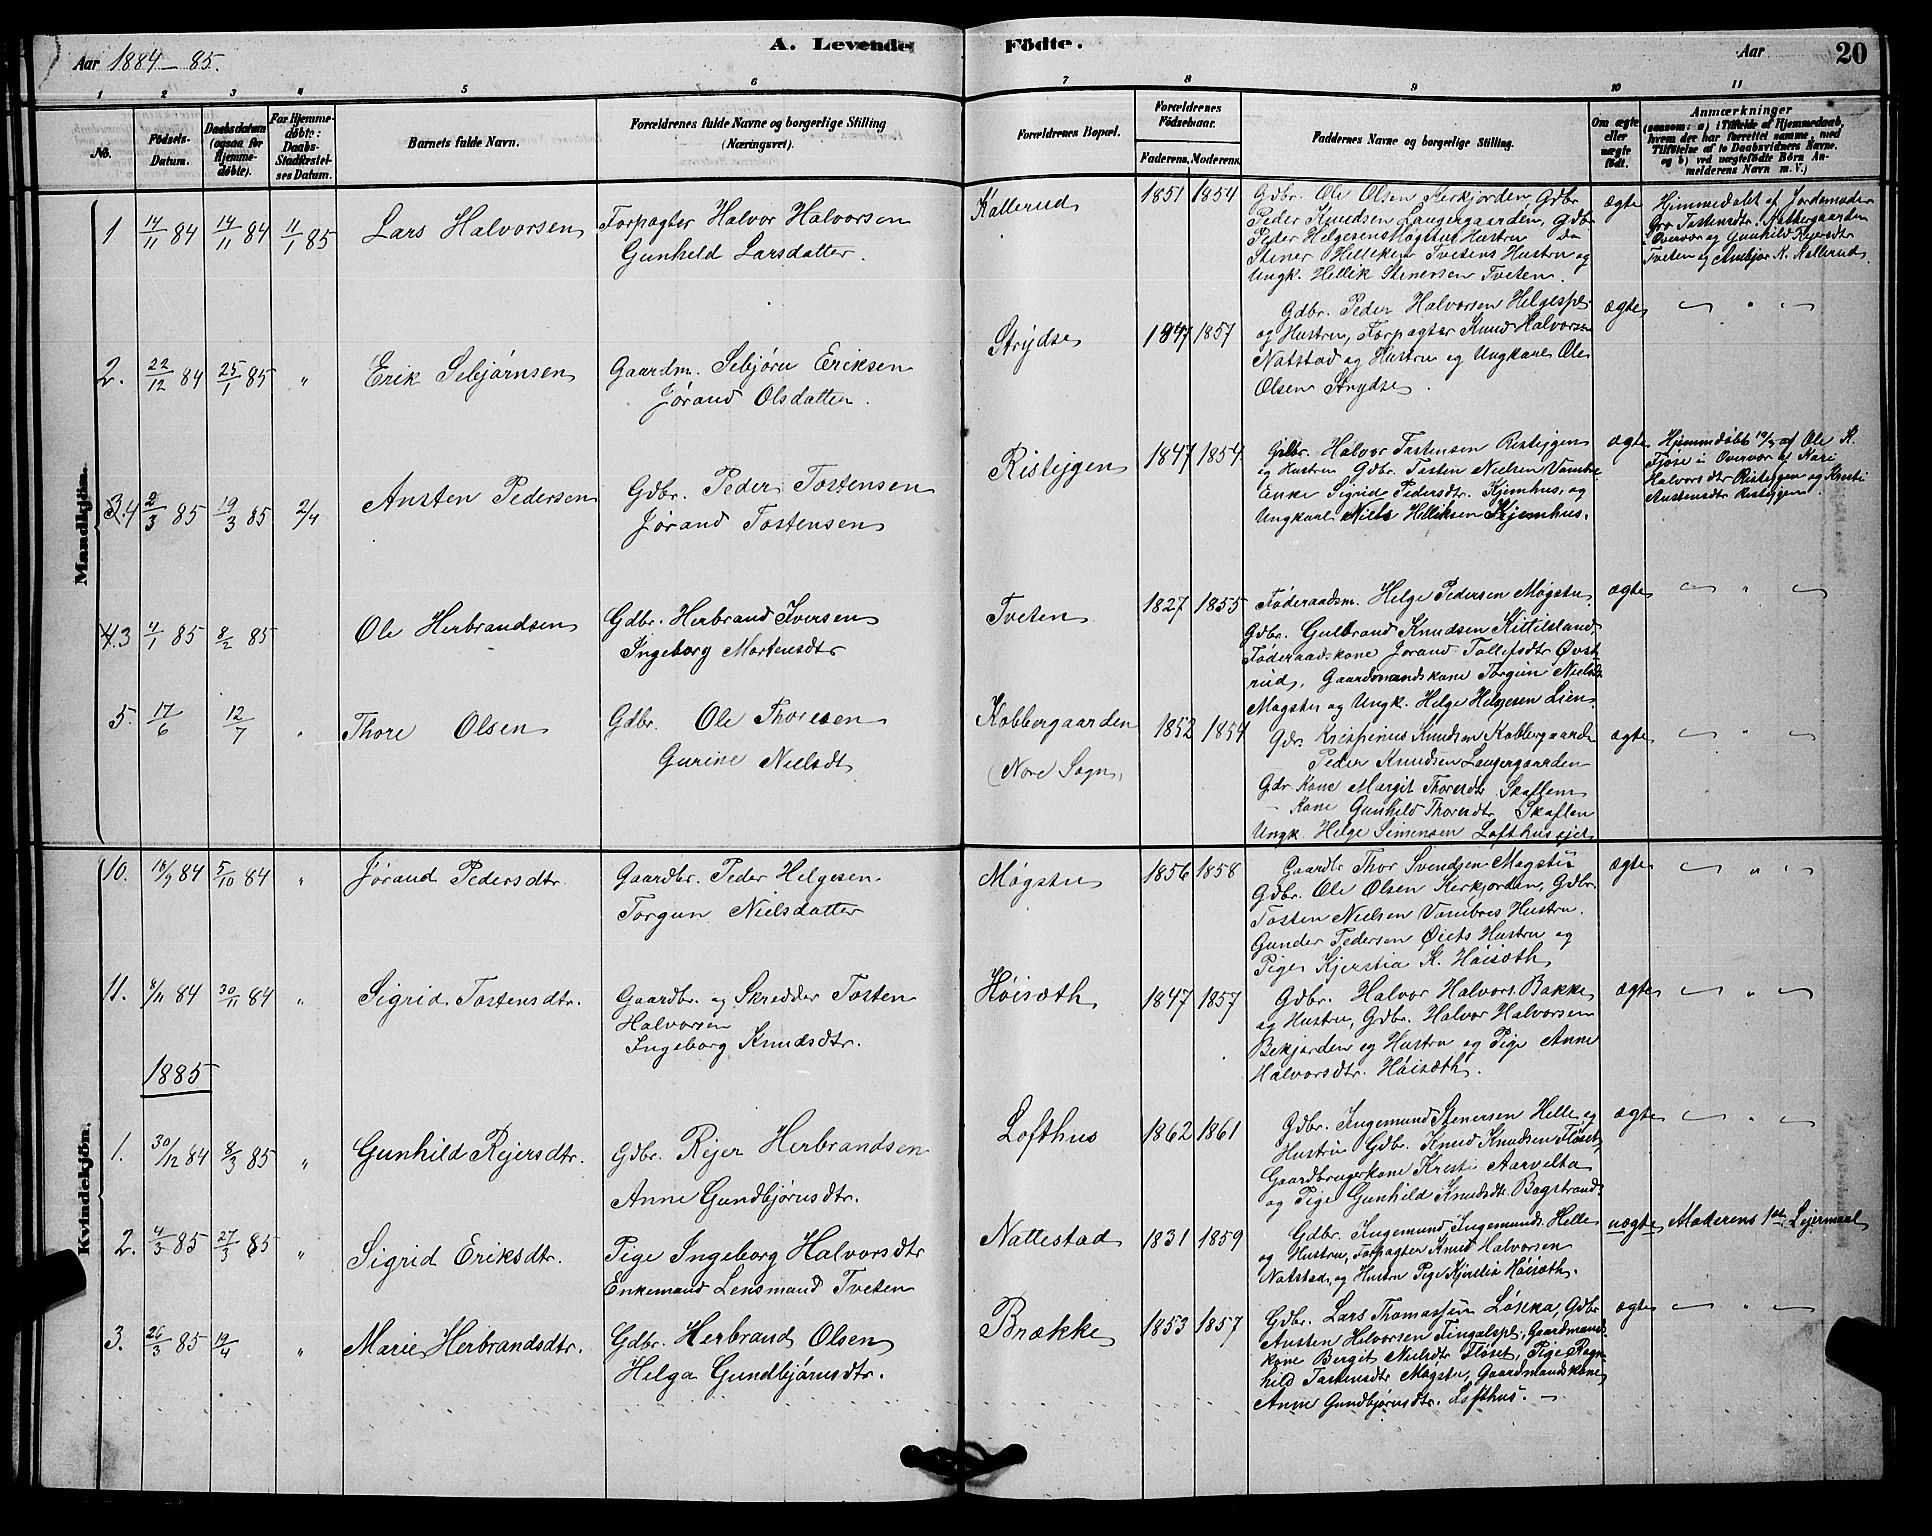 Aar 1884-85.
A. Levende Födte.
Aar
20
1 2 3 4 5 6 7 8 9 10 11
No.
Födsels-Datum.
Daabsdatum (ogsaa for Hjemme-döbte).
For Hjemme-döbte: Daabs-Stadfæstel-ses Datum.
Barnets fulde Navn.
Forældrenes fulde Navne og borgerlige Stilling (Næringsvei).
Forældrenes Bopæl.
Forældrenes Födselsaar.
Faderens. Moderens.
Faddernes Navne og borgerlige Stilling.
Om ægte eller uægte födt.
Anmærkninger
(saasom: a) i Tilfælde af Hjemmedaab,
hvem der har forrettet samme, med
Tilföielse af to Daabsvidners Navne.
og b) ved uægtefödte Börn An-
melderens Navn m. V.)
Mandkjön.
1 14/11 84 14/11 84 11/1 85 Lars Halvorsen
Forpagter Halvor Halvorsen
Gunhild Larsdatter.
Kallerud 1851 1854
Gdbr. Ole Olsen Kerkjorden, Gdbr
Peder Knudsen Laugergaarden, Gdbr
Peder Helgesens Møgstus Hustru
Stener Hellikens Tvetens Hustru og
Ungk. Hellik Stenersen Tveten.
ægte
Hjemmedøbt af Jordemoder
Gro Tostensdtr.
Overvær og Gunhild Rejersdtr
Tveten og K. Kallerud.
2. 22/12 84 25/1 85 " Erik Sebjørnsen
Gaardm. Sebjørn Eriksen
Jørand Olsdatter.
Strydse 1847 1857
Gdbr. Peder Halvorsen Helgespl.
og Hustru, Forpagter Knud Halvorsen
Natstad og Hustru og Ungkarl Ole
Olsen Strydse.
ægte — " —
3.4 2/3 85 19/3 85 2/4 Austen Pedersen
Gdbr. Peder Tostensen
Jørand Tostensen
Ristejgen 1847 1854
Gdbr. Halvor Tostensen Ristejgen
og Hustru Gdbr. Tosten Nielsen
Enke Sigrid Pedersdtr. Kjemhus, og
Ungkarl Niels Helliksen Kjemhus.
ægte
Hjemmedøbt 19/3 af Ole K.
Fjøse i Overvær af Kari
Halvorsdtr Ristejgen og Kristi
Austensdtr Ristejgen.
4.3 4/1 85 8/2 85 Ole Herbrandsen
Gdbr. Herbrand Iversen
Ingeborg Mortensdtr
Tveten 1827 1855
Føderaadsm. Helge Pedersen Møgstu,
Gdbr. Gulbrand Knudsen Kittilsland,
Føderaadskone Jørand Tollefsdtr Øvst-
rud, Gaardmandskone Torgun Nielsdtr
Møgstu og Ungk. Helge Helgesen Lien.
ægte — " —
5. 17/6 12/7 " Thore Olsen
Gdbr. Ole Thoresen
Gurine Nielsdt
Kobbergaarden
(Nore Sogn)
1852 1854
Gdr. Krespinus Knudsen Kobbergaarden
Peder Knudsen Laugergaarden
Gdr Kone Margit Thoresdtr Skaflem
— Kone Gunhild Thoresdtr Skaflen
Ungk. Helge Simensen Lofthusejet
ægte — " —
Kvindekjön.
10. 13/9 84 5/10 84 " Jørand Pedersdtr.
Gaardbr. Peder Helgesen
Torgun Nielsdatter
Møgstu 1856 1858
Gaardbr Thor Svendsen Møgstu
Gdbr. Ole Olsen Kerkjorden, Gdbr.
Tosten Nielsen Hustru.
Gunder Pedersen Øiets Hustru og
Pige Kjerstia K. Høisæth.
ægte — " —
11. 8/11 84 30/11 84 " Sigrid Tostensdtr.
Gaardbr. og Skredder Tosten
Halvorsen
Ingeborg Knudsdtr.
Høisæth 1847 1857
Gdbr. Halvor Halvors. Bakke
og Hustru, Gdbr. Halvor Halvorsen
Bekjorden og Hustru og Pige Anne
Halvorsdtr. Høisæth.
ægte — " —
1885
1. 30/12 84 8/3 85 " Gunhild Rejersdtr.
Gdbr. Rejer Herbrandsen
Anne Gundbjørnsdtr.
Lofthus 1862 1861
Gdbr. Ingemund Stenersen Helle og
Hustru Gdbr. Knud Knudsen Fløset,
Gaardbrugerkone Kresti Aarvelta
og Pige Gunhild Knudsdtr Bagstrand.
ægte — " —
2. 4/3 85 27/3 85 " Sigrid Eriksdtr.
Pige Ingeborg Halvorsdtr
Enkemand Lensmand Tveten
Nattestad 1831 1859
Gdbr. Ingemund Ingemunds. Helle
og Hustru, Forpagter Knud Halvorsen
Natstad, og Hustru Pige Kjerstia Høisæth.
uægte Moderens 1ste Lejermaal
3. 26/3 85 19/4 " Marie Herbrandsdtr.
Gdbr. Herbrand Olsen
Helga Gundbjørnsdtr.
Brække 1853 1857
Gdbr. Lars Thomassen Løkka, Gdbr
Austen Halvorsen Tingalspl., Gaardmands-
kone Bergit Nielsdtr Fløset, Pige Ragn-
hild Tostensdtr Møgstu, Gaardmandskone
Anne Gundbjørnsdtr. Lofthus. —
ægte — " —